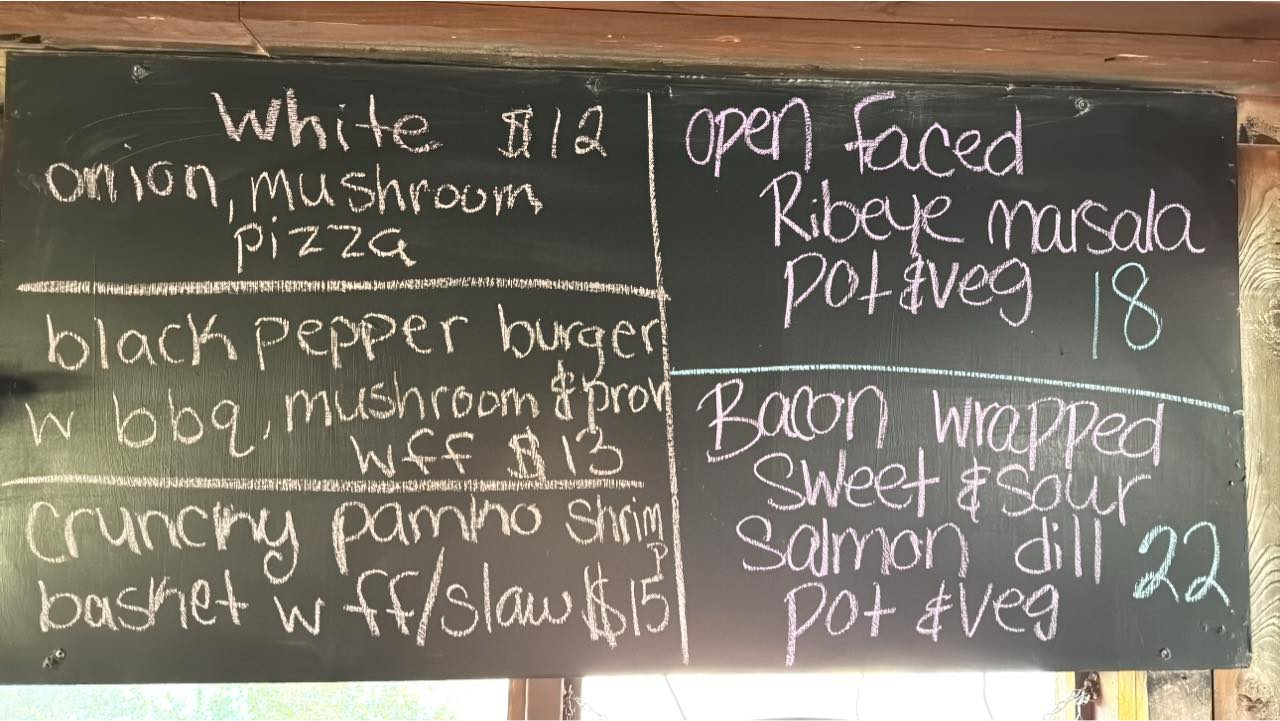 White $12
onion, mushroom
pizza
black pepper burger
w bbq, mushroom & prov
wff $13
Crunchy pamko shrimp
basket w ff/slaw $15
open faced
Ribeye marsala
pot & veg 18
Bacon wrapped
sweet & sour
Salmon dill 22
pot & veg